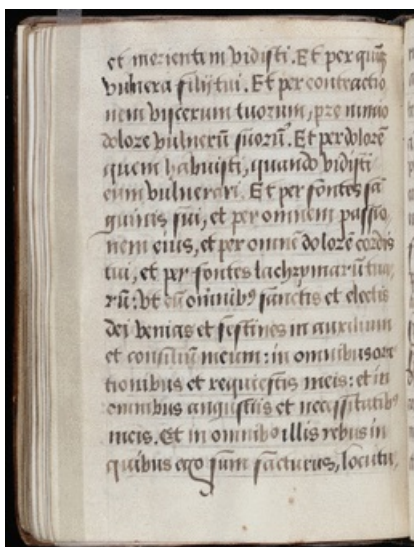 et morientem vidisti. Et per quiqȝ
vulnera filij tui. Et per contractio
nem viscerum tuorum, pre nimio
dolore vulnerū suorū. Et per dolorē
quem habuisti, quando vidisti
eum vulnerari. Et per fontes sā
guinis sui, et per omnem passio
nem eius, et per omnē dolorē cordis
tui, et per fontes lachrymarū tua
rū: vt cū omnibꝰ sanctis et electis
dei venias et festines in auxilium
et consiliū meum: in omnibus ora
tionibus et requiestis meis: et in
omnibus angustiis et necessitatibꝰ
meis. Et in omnibꝰ illis rebus in
quibus ego sum facturus, locutu,